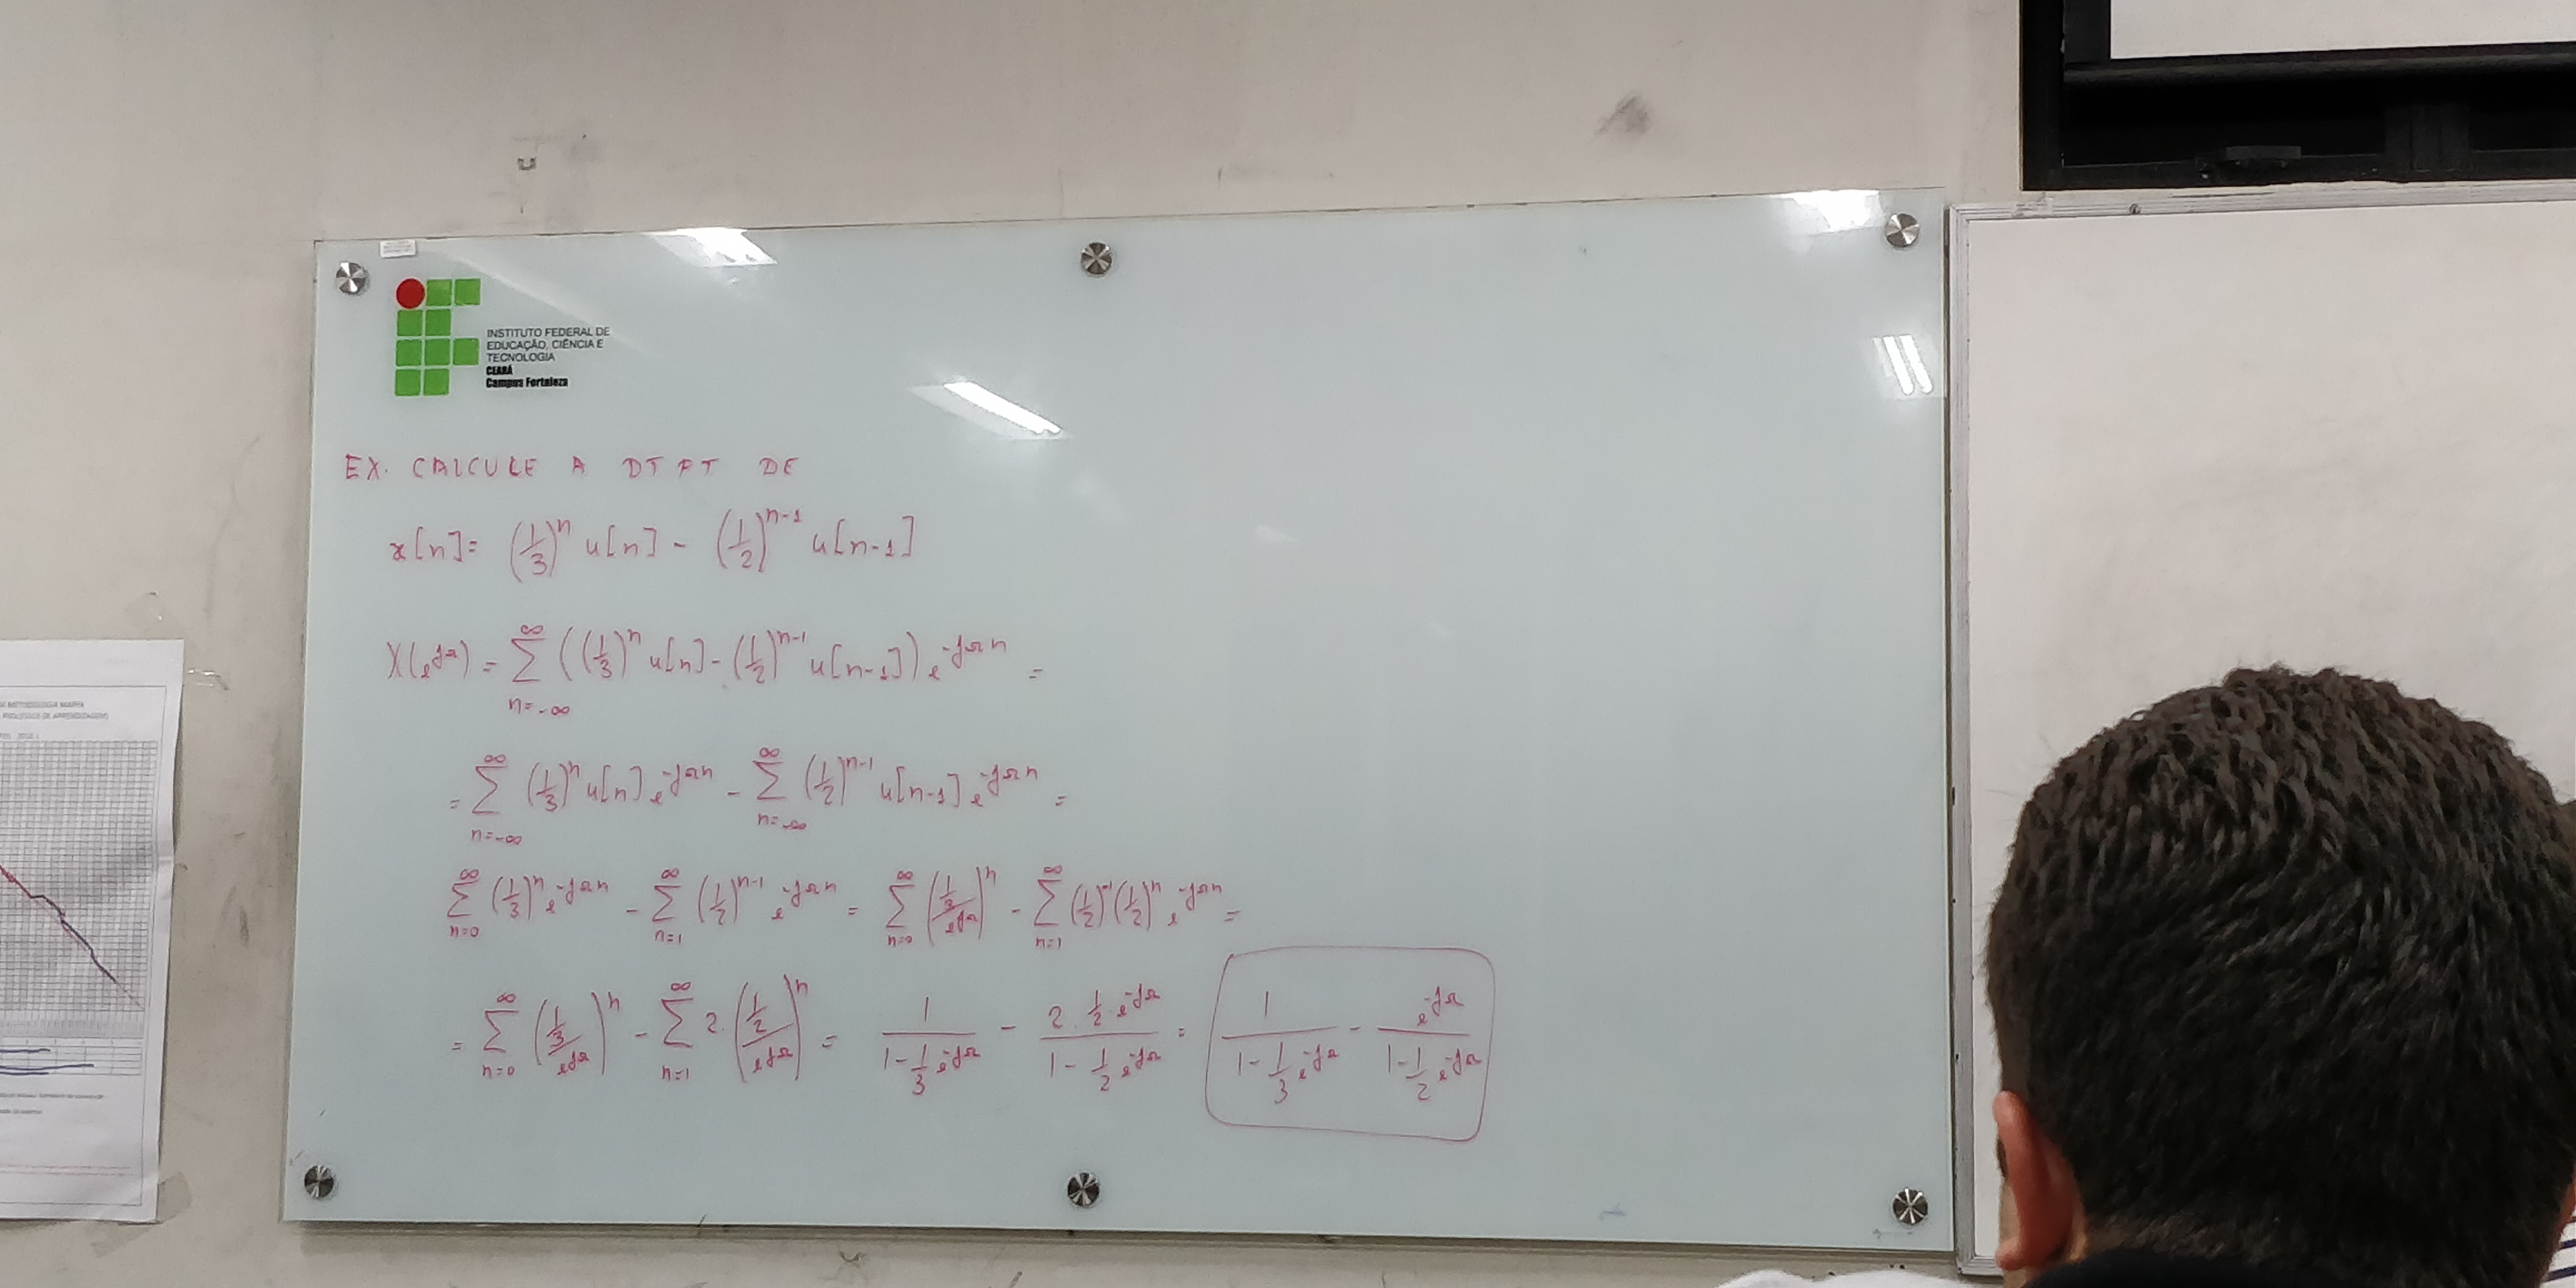 INSTITUTO FEDERAL DE
EDUCAÇÃO, CIÊNCIA E
TECNOLOGIA
CEARÁ
Campus Fortaleza
EX. CALCULE A DTFT DE
x[n] = (1/3)^n u[n] - (1/2)^{n-1} u[n-1]
X(e^{jΩ}) = ∑_{n=-∞}^{∞} ((1/3)^n u[n] - (1/2)^{n-1} u[n-1]) e^{-jΩn} =
= ∑_{n=-∞}^{∞} (1/3)^n u[n] e^{-jΩn} - ∑_{n=-∞}^{∞} (1/2)^{n-1} u[n-1] e^{-jΩn} =
∑_{n=0}^{∞} (1/3)^n e^{-jΩn} - ∑_{n=1}^{∞} (1/2)^{n-1} e^{-jΩn} = ∑_{n=0}^{∞} ((1/3)/e^{jΩ})^n - ∑_{n=1}^{∞} (1/2)^{-1} (1/2)^n e^{-jΩn} =
= ∑_{n=0}^{∞} ((1/3)/e^{jΩ})^n - ∑_{n=1}^{∞} 2·((1/2)/e^{jΩ})^n = 1/(1 - 1/3 e^{-jΩ}) - (2·1/2·e^{-jΩ})/(1 - 1/2 e^{-jΩ}) = 1/(1 - 1/3 e^{-jΩ}) - e^{-jΩ}/(1 - 1/2 e^{-jΩ})
METODOLOGIA
PROCESSOS DE APRENDIZAGEM)